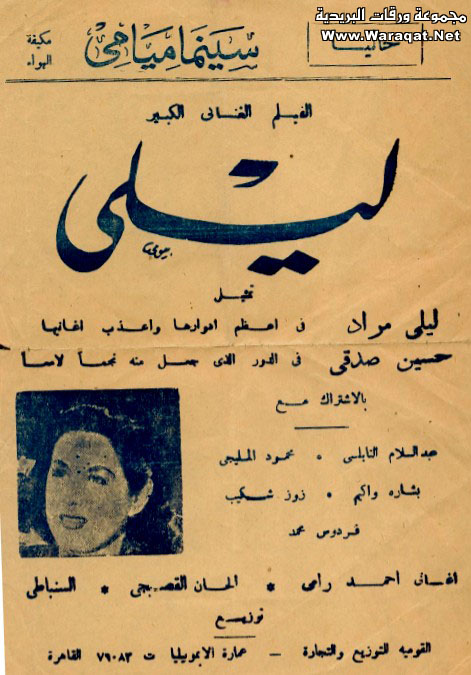 مجموعة ورقات البريدية
www.Waraqat.Net
حاليا
سينما ميامى
مكيفة الهواء
الفيلم الغنائى الكبير
ليلى
تمثيل
ليلى مراد فى اعظم ادوارها واعذب اغانيها
حسين صدقى فى الدور الذى جعل منه نجماً لامعاً
بالاشتراك مع
عبدالسلام النابلسى • محمود المليجى
بشاره واكيم • زوز شكيب
فردوس محمد
اغانى احمد رامى * الحان القصبجى * السنباطى
توزيع
القوميه للتوزيع والتجارة – عمارة الايموبيليا ت ٧٦٠٨٣ القاهرة